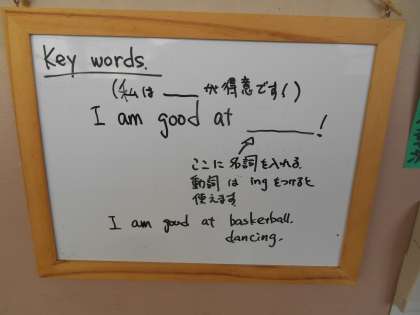 Key words.
(私は ___ が得意です！)
I am good at ______!
ここに名詞を入れる
動詞は ingをつけると
使えます
I am good at baskerball.
dancing.